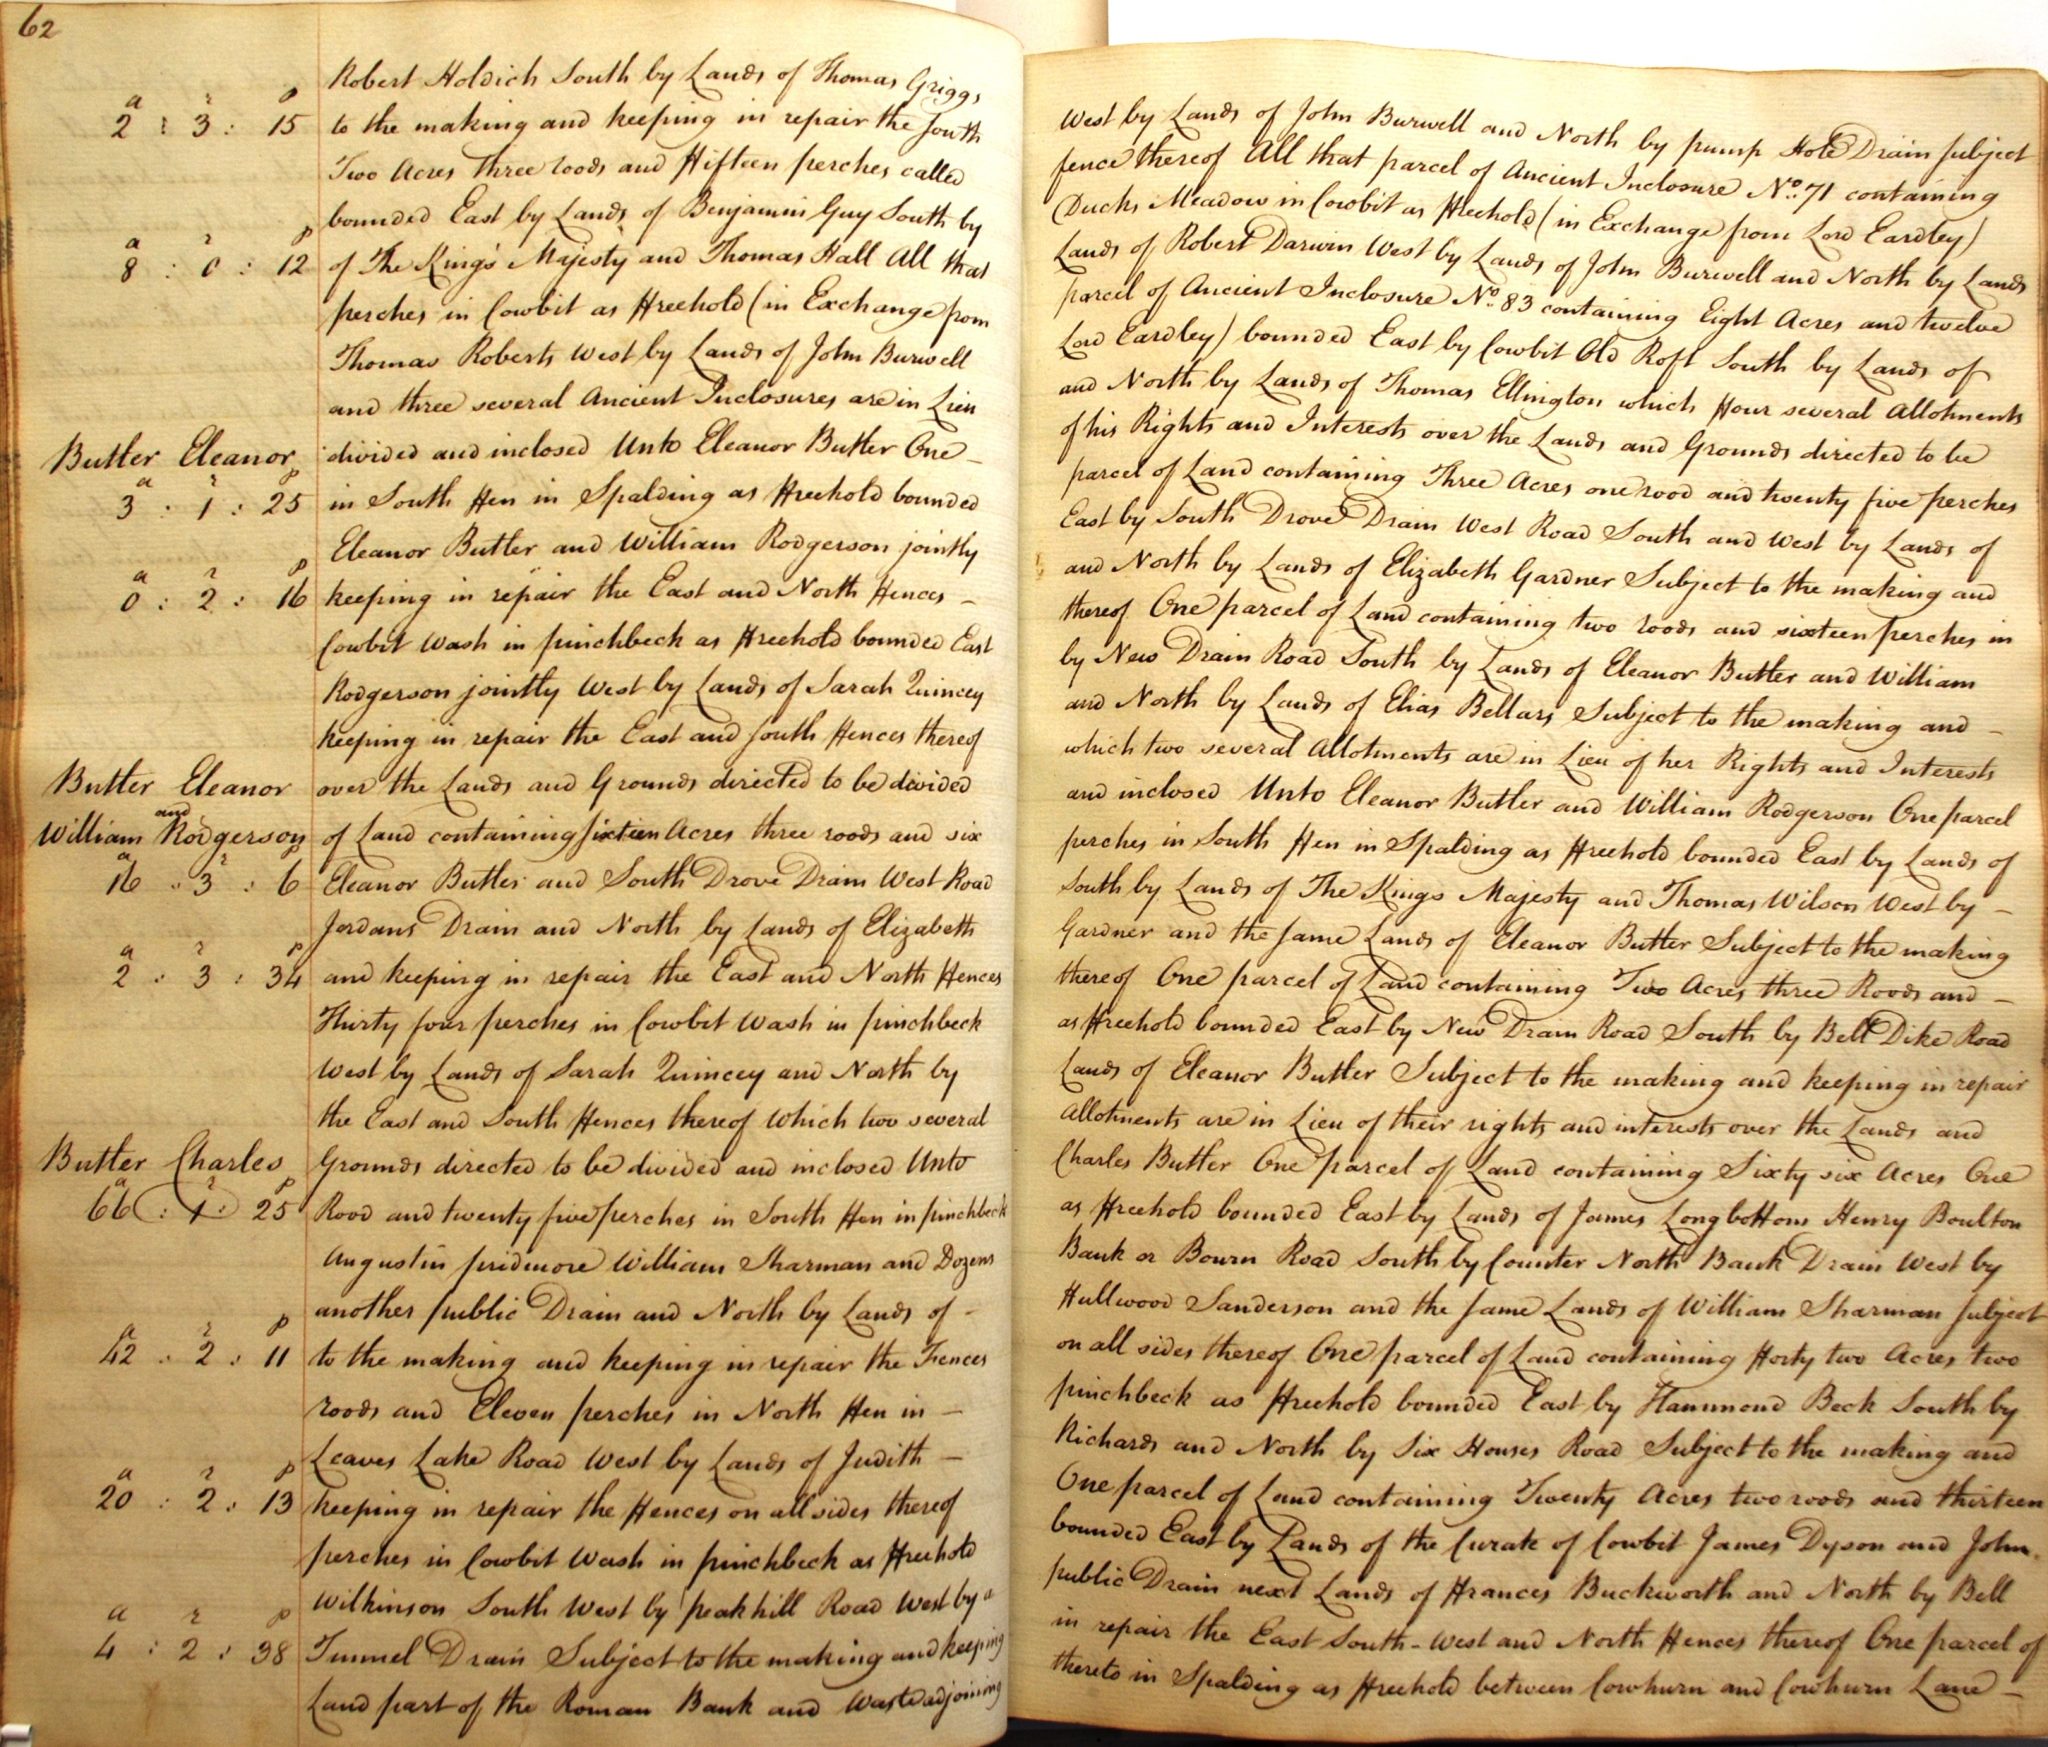 62
Robert Holdich South by Lands of Thomas Griggs West by Lands of John Burwell and North by pump Hole Drain subject
a r p
2 : 3 : 15 to the making and keeping in repair the South fence thereof All that parcel of Ancient Inclosure No. 71 containing
Two Acres three roods and Fifteen perches called Ducks Meadow in Cowbit as Freehold (in Exchange from Lord Eardley)
bounded East by Lands of Benjamin Guy South by Lands of Robert Darwin West by Lands of John Burwell and North by Lands
a r p
8 : 0 : 12 of The King's Majesty and Thomas Hall All that parcel of Ancient Inclosure No. 83 containing Eight Acres and twelve
perches in Cowbit as Freehold (in Exchange from Lord Eardley) bounded East by Cowbit Old Roft South by Lands of
Thomas Roberts West by Lands of John Burwell and North by Lands of Thomas Ellington which Four several Allotments
and three several Ancient Inclosures are in Lieu of his Rights and Interests over the Lands and Grounds directed to be
Butler Eleanor divided and inclosed Unto Eleanor Butler One parcel of Land containing Three Acres one rood and twenty five perches
a r p
3 : 1 : 25 in South Fen in Spalding as Freehold bounded East by South Drove Drain West Road South and West by Lands of
Eleanor Butler and William Rodgerson jointly and North by Lands of Elizabeth Gardner Subject to the making and
a r p
0 : 2 : 16 keeping in repair the East and North Fences thereof One parcel of Land containing two roods and sixteen perches in
Cowbit Wash in pinchbeck as Freehold bounded East by New Drain Road South by Lands of Eleanor Butler and William
Rodgerson jointly West by Lands of Sarah Quincey and North by Lands of Elias Bellars Subject to the making and
keeping in repair the East and South Fences thereof which two several Allotments are in Lieu of her Rights and Interests
Butler Eleanor over the Lands and Grounds directed to be divided and inclosed Unto Eleanor Butler and William Rodgerson One parcel
and
William Rodgerson of Land containing Sixteen Acres three roods and six perches in South Fen in Spalding as Freehold bounded East by Lands of
a r p
16 : 3 : 6 Eleanor Butler and South Drove Drain West Road South by Lands of The Kings Majesty and Thomas Wilson West by
Jordans Drain and North by Lands of Elizabeth Gardner and the same Lands of Eleanor Butler Subject to the making
a r p
2 : 3 : 34 and keeping in repair the East and North Fences thereof One parcel of Land containing Two Acres three Roods and
Thirty four perches in Cowbit Wash in pinchbeck as Freehold bounded East by New Drain Road South by Bell Dike Road
West by Lands of Sarah Quincey and North by Lands of Eleanor Butler Subject to the making and keeping in repair
the East and South Fences thereof Which two several Allotments are in Lieu of their rights and interests over the Lands and
Butler Charles Grounds directed to be divided and inclosed Unto Charles Butler One parcel of Land containing Sixty six Acres One
a r p
66 : 1 : 25 Rood and twenty five perches in South Fen in pinchbeck as Freehold bounded East by Lands of James Longbottom Henry Boulton
Augustin pridmore William Sharman and Dozens Bank or Bourn Road South by Counter North Bank Drain West by
another public Drain and North by Lands of Hullwood Sanderson and the same Lands of William Sharman subject
a r p
42 : 2 : 11 to the making and keeping in repair the Fences on all sides thereof One parcel of Land containing Forty two Acres two
roods and Eleven perches in North Fen in pinchbeck as Freehold bounded East by Hammond Beck South by
Leaves Lake Road West by Lands of Judith Richards and North by Six Houses Road Subject to the making and
a r p
20 : 2 : 13 keeping in repair the Fences on all sides thereof One parcel of Land containing Twenty Acres two roods and thirteen
perches in Cowbit Wash in pinchbeck as Freehold bounded East by Lands of the Curate of Cowbit James Dyson and John
Wilkinson South West by peakhill Road West by a public Drain next Lands of Frances Buckworth and North by Bell
a r p
4 : 2 : 38 Tunnel Drain Subject to the making and keeping in repair the East South-West and North Fences thereof One parcel of
Land part of the Roman Bank and Waste adjoining thereto in Spalding as Freehold between Cowhurn and Cowhurn Lane